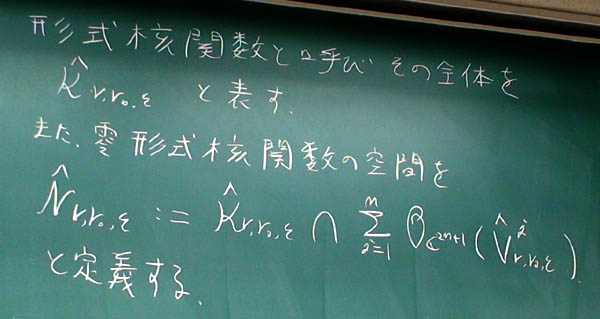 形式核関数と呼び その全体を
K̂r,r₀,ε と表す.
また、零形式核関数の空間を
N̂r,r₀,ε := K̂r,r₀,ε ∩ ∑ⁿᵢ₌₁ 𝒪ℂ²ⁿ⁺¹(V̂ⁱr,r₀,ε)
と定義する.